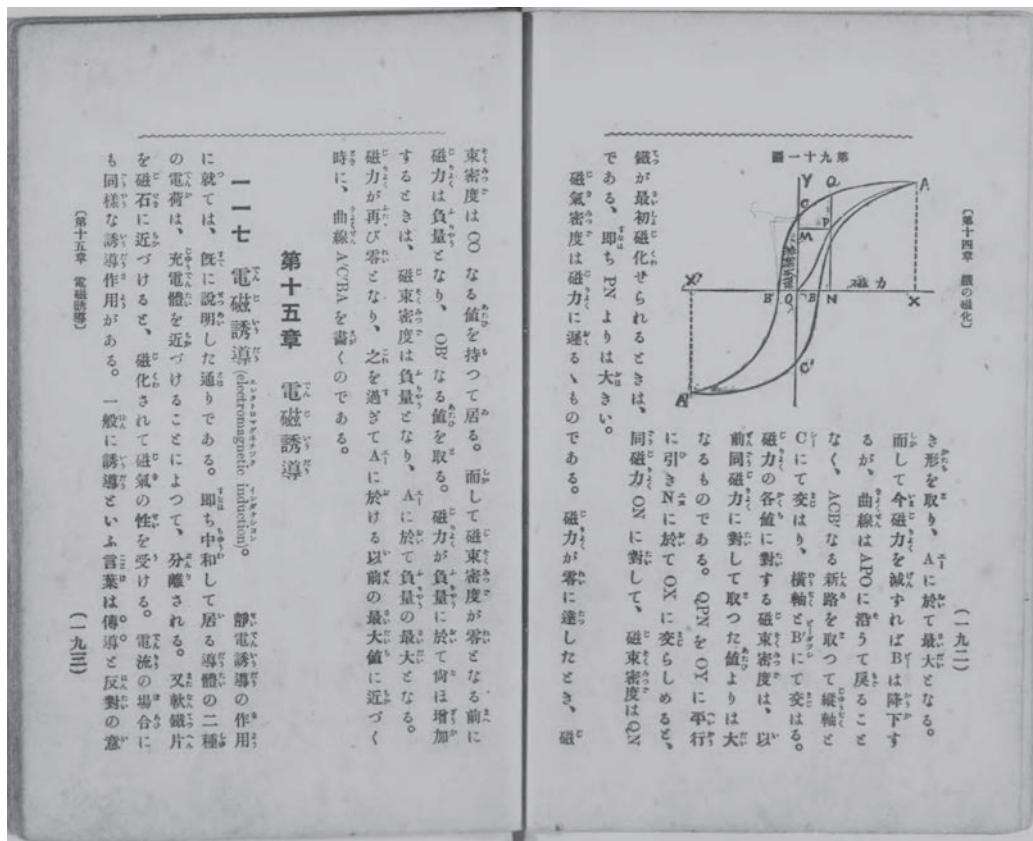 〔第十四章　鐵の磁化〕
（一九二）
第九十一圖
Y
Q
A
C
P
M
X'
B'
O
B
N
磁力
X
C'
A'
き形を取り、Aに於て最大となる。
而して今磁力を減ずればBは降下す
るが、曲線はAPOに沿うて戻ること
なく、ACB'なる新路を取つて縱軸と
Cにて交はり、橫軸とB'にて交はる。
磁力の各値に對する磁束密度は、以
前同磁力に對して取つた値よりは大
なるものである。QPNをOYに平行
に引きNに於てOXに交らしめると、
同磁力ONに對して、磁束密度はQN
である、卽ちPNよりは大きい。
鐵が最初磁化せられるときは、
磁氣密度は磁力に遲るゝものである。磁力が零に達したとき、磁
束密度はCOなる値を持つて居る。而して磁束密度が零となる前に
磁力は負量となり、OB'なる値を取る。磁力が負量に於て尙ほ增加
するときは、磁束密度は負量となり、A'に於て負量の最大となる。
磁力が再び零となり、之を過ぎてAに於ける以前の最大値に近づく
時に、曲線A'C'BAを畫くのである。
第十五章　電磁誘導
一一七　電磁誘導(electromagnetic induction)。　靜電誘導の作用
に就ては、旣に說明した通りである。卽ち中和して居る導體の二種
の電荷は、充電體を近づけることによつて、分離される。又軟鐵片
を磁石に近づけると、磁化されて磁氣の性を受ける。電流の場合に
も同樣な誘導作用がある。一般に誘導といふ言葉は傳導と反對の意
〔第十五章　電磁誘導〕
（一九三）